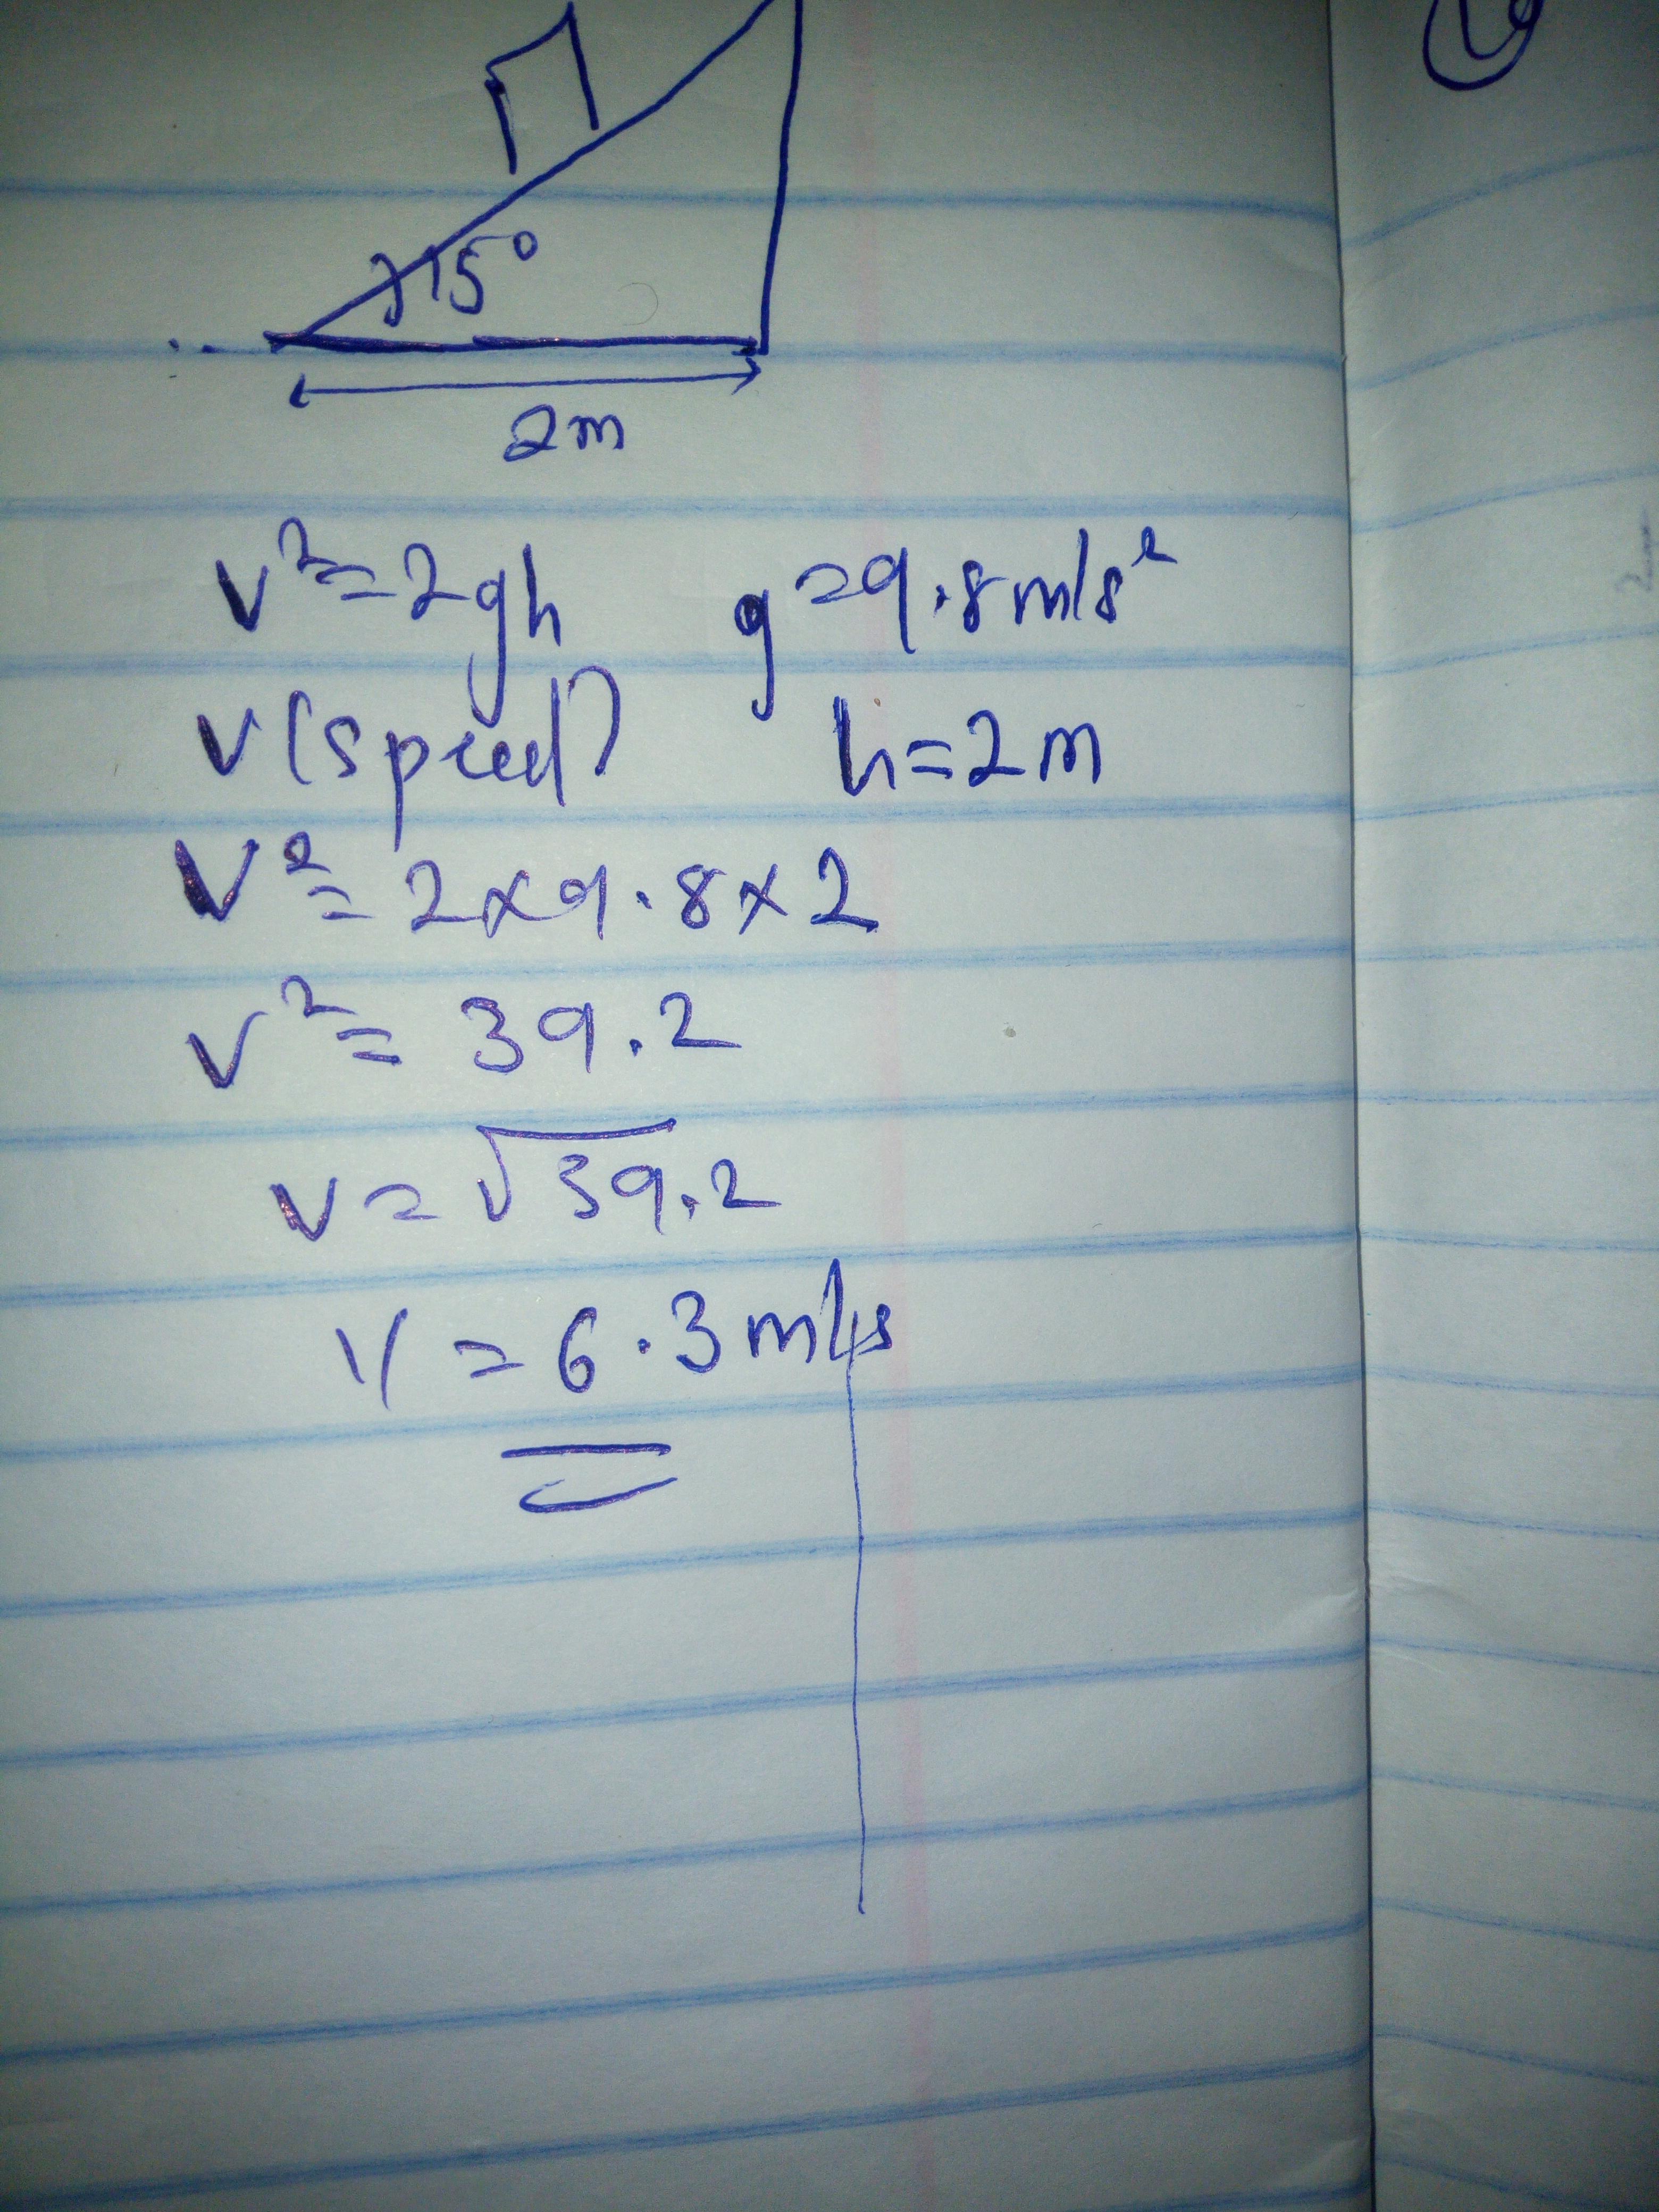 15°
2m
v²=2gh g=9.8m/s²
v(speed) h=2m
v²=2×9.8×2
v²= 39.2
v=√39.2
v = 6.3m/s